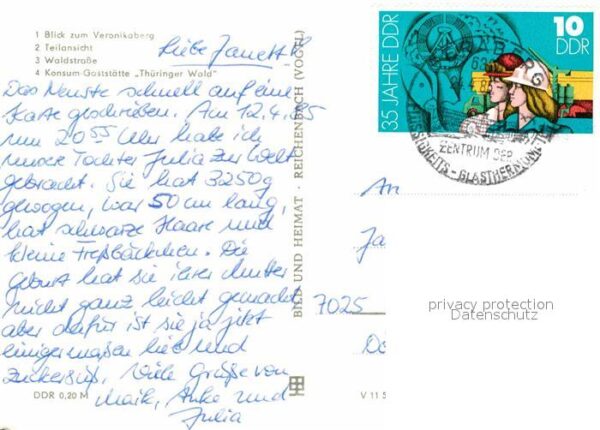 1 Blick zum Veronikaberg
2 Teilansicht
3 Waldstraße
4 Konsum-Gaststätte „Thüringer Wald"
Liebe Janett!
Das Neuste schnell auf eine
Karte geschrieben. Am 12.4.85
um 20.55 Uhr habe ich
unsere Tochter Julia zur Welt
gebracht. Sie hat 3250g
gewogen, war 50 cm lang,
hat schwarze Haare und
kleine Freßbäckchen. Die
Geburt hat sie ihrer Mutter
nicht ganz leicht gemacht
aber dafür ist sie ja jetzt
einigermaßen lieb und
zuckersüß. Viele Grüße von
Maik, Anke und
Julia
DDR 0,20 M
BILD UND HEIMAT · REICHENBACH (VOGTL)
V 11 5
35 JAHRE DDR
10
DDR
ZENTRUM DER
GLASTHERMOM
An
Ja
7025
privacy protection
Datenschutz